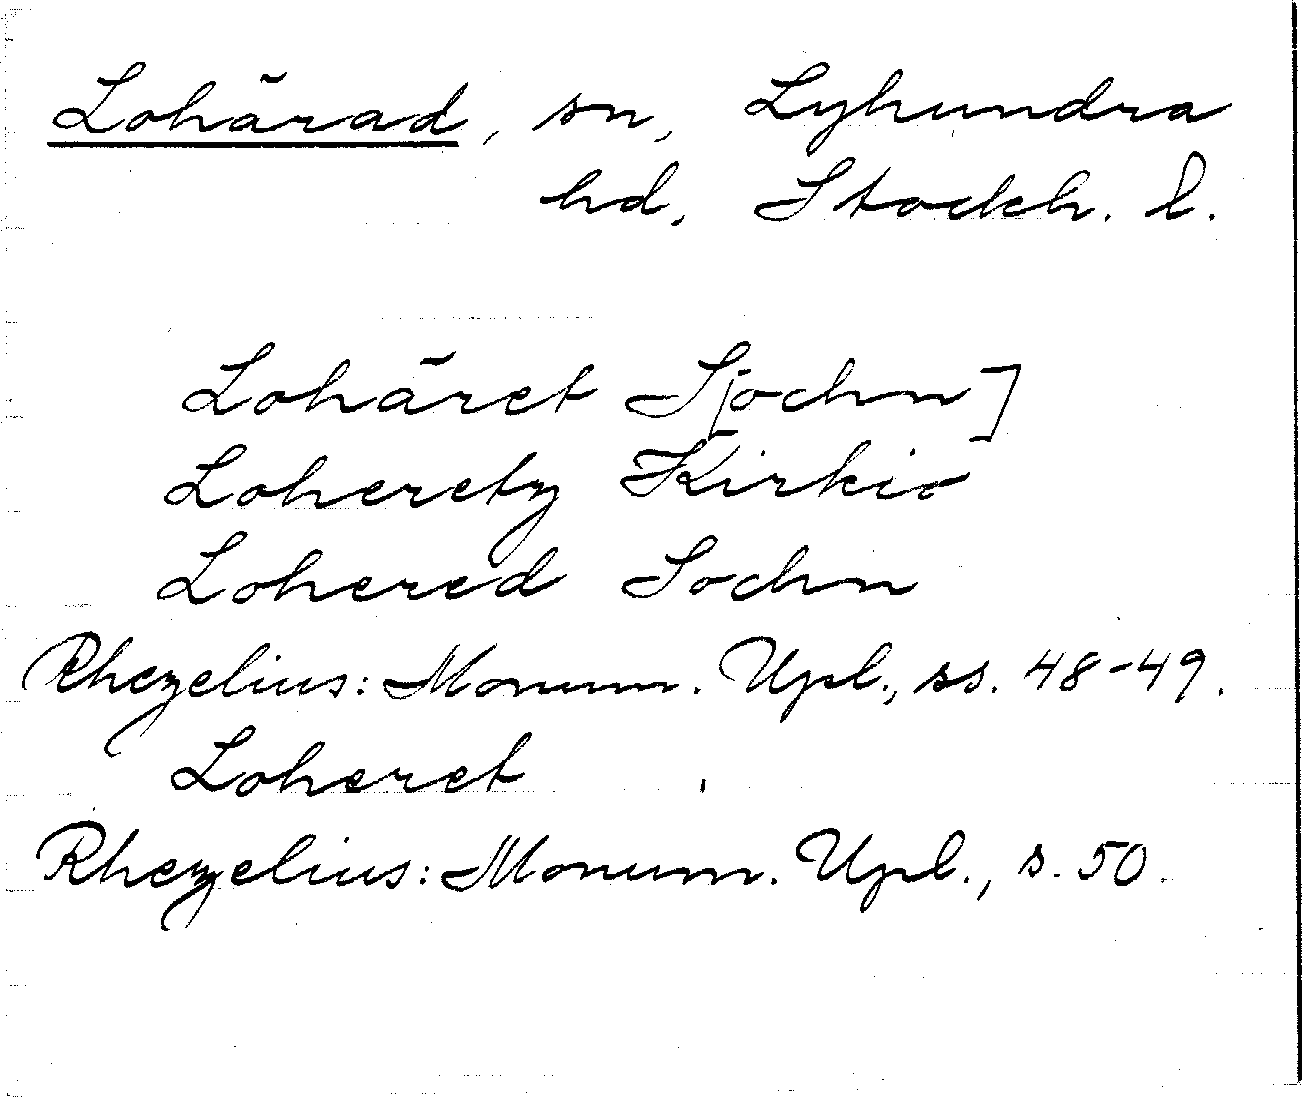 Lohärad, sn, Lyhundra
hd, Stockh. l.
Lohäret Sjochn]
Loheretz Kirkio
Lohered Sochn
Rhezelius: Monum. Upl., ss. 48-49.
Loheret
Rhezelius: Monum. Upl., s. 50.